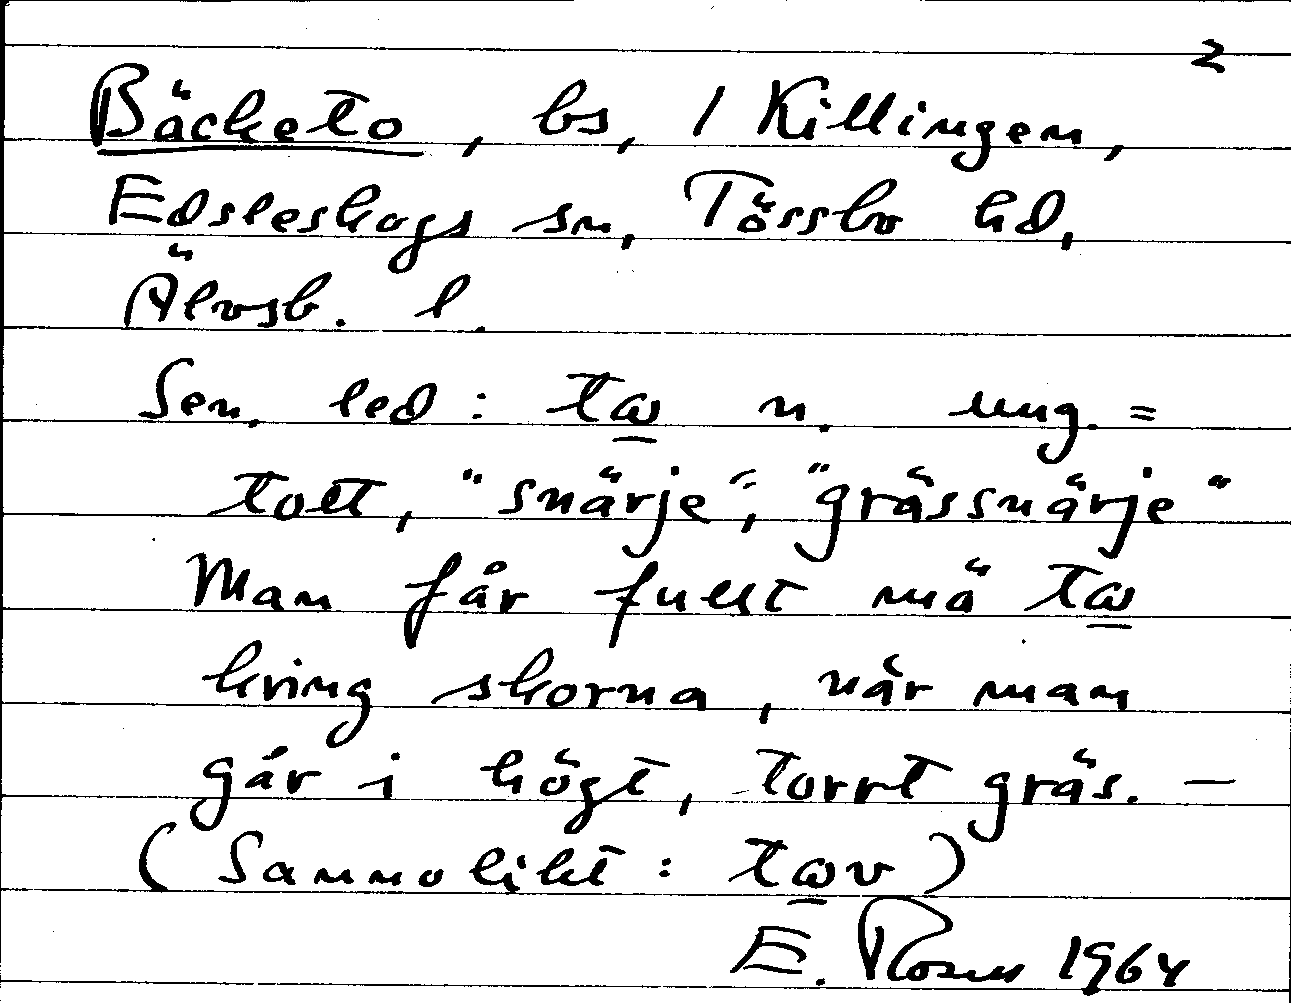 2
Bäcketo, bs, / Killingen,
Edsleskogs sn, Tössbo hd,
Älvsb. l.
Sen. led: tω n. ung. =
tott, "snärje", "grässnärje"
Man får fullt mä tω
kring skorna, när man
går i högt, torrt gräs. —
(Sannolikt: tωv)
E. Rosell 1964